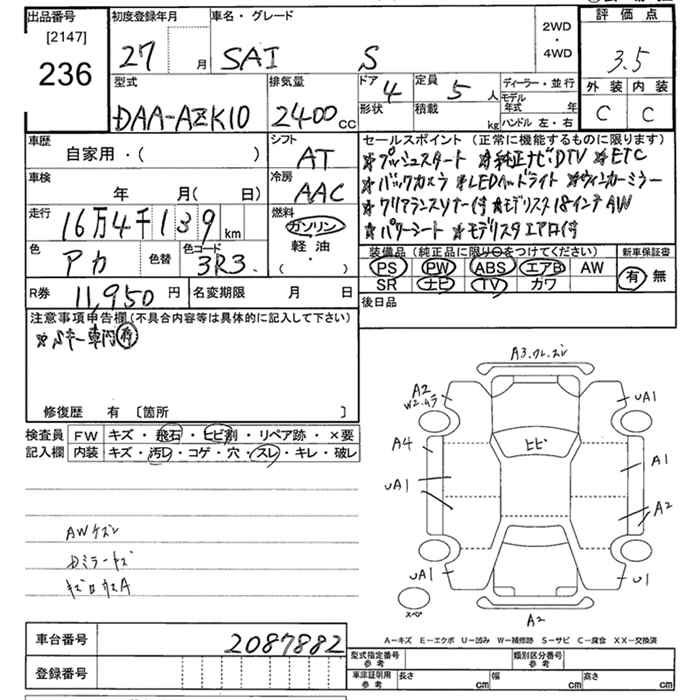 出品番号
[2147]
236
初度登録年月
27 月
車名・グレード
SAI S
2WD
・
4WD
評価点
3.5
外装 内装
C C
型式
DAA-AZK10
排気量
2400 CC
ドア 4
形状
定員 5 人
積載 kg
ディーラー・並行
モデル年式 年
ハンドル 左・右
車歴
自家用・( )
シフト
AT
車検
年 月( 日)
冷房
AAC
走行
16万4千139 km
燃料
ガソリン
軽油
・( )
色
アカ
色替
色コード
3R3
R券 11,950 円
名変期限 月 日
セールスポイント(正常に機能するものに限ります)
※プッシュスタート ※純正ナビDTV ※ETC
※バックカメラ ※LEDヘッドライト ※ウィンカーミラー
※クリアランスソナー付 ※モデリスタ18インチAW
※パワーシート ※モデリスタエアロ付
装備品(純正品に限り○をつけてください)
PS PW ABS エアB AW
SR ナビ TV カワ
新車保証書
有 無
後日品
注意事項申告欄(不具合内容等は具体的に記入して下さい)
※Sキー専門
修復歴 有 〔箇所 〕
検査員記入欄
FW キズ・飛石・ヒビ割・リペア跡・×要
内装 キズ・汚レ・コゲ・穴・スレ・キレ・破レ
AWキズ
Dミラーキズ
A3.ワレ.ズレ
A2
UA1
A4
ヒビ
A1
UA1
A2
UA1
U1
スペア
A2
A−キズ E−エクボ U−凹み W−補修跡 S−サビ C−腐食 XX−交換済
車台番号 2087882
登録番号
型式指定番号
参考
類別区分番号
参考
車庫証明用
参考
長さ cm
幅 cm
高さ cm